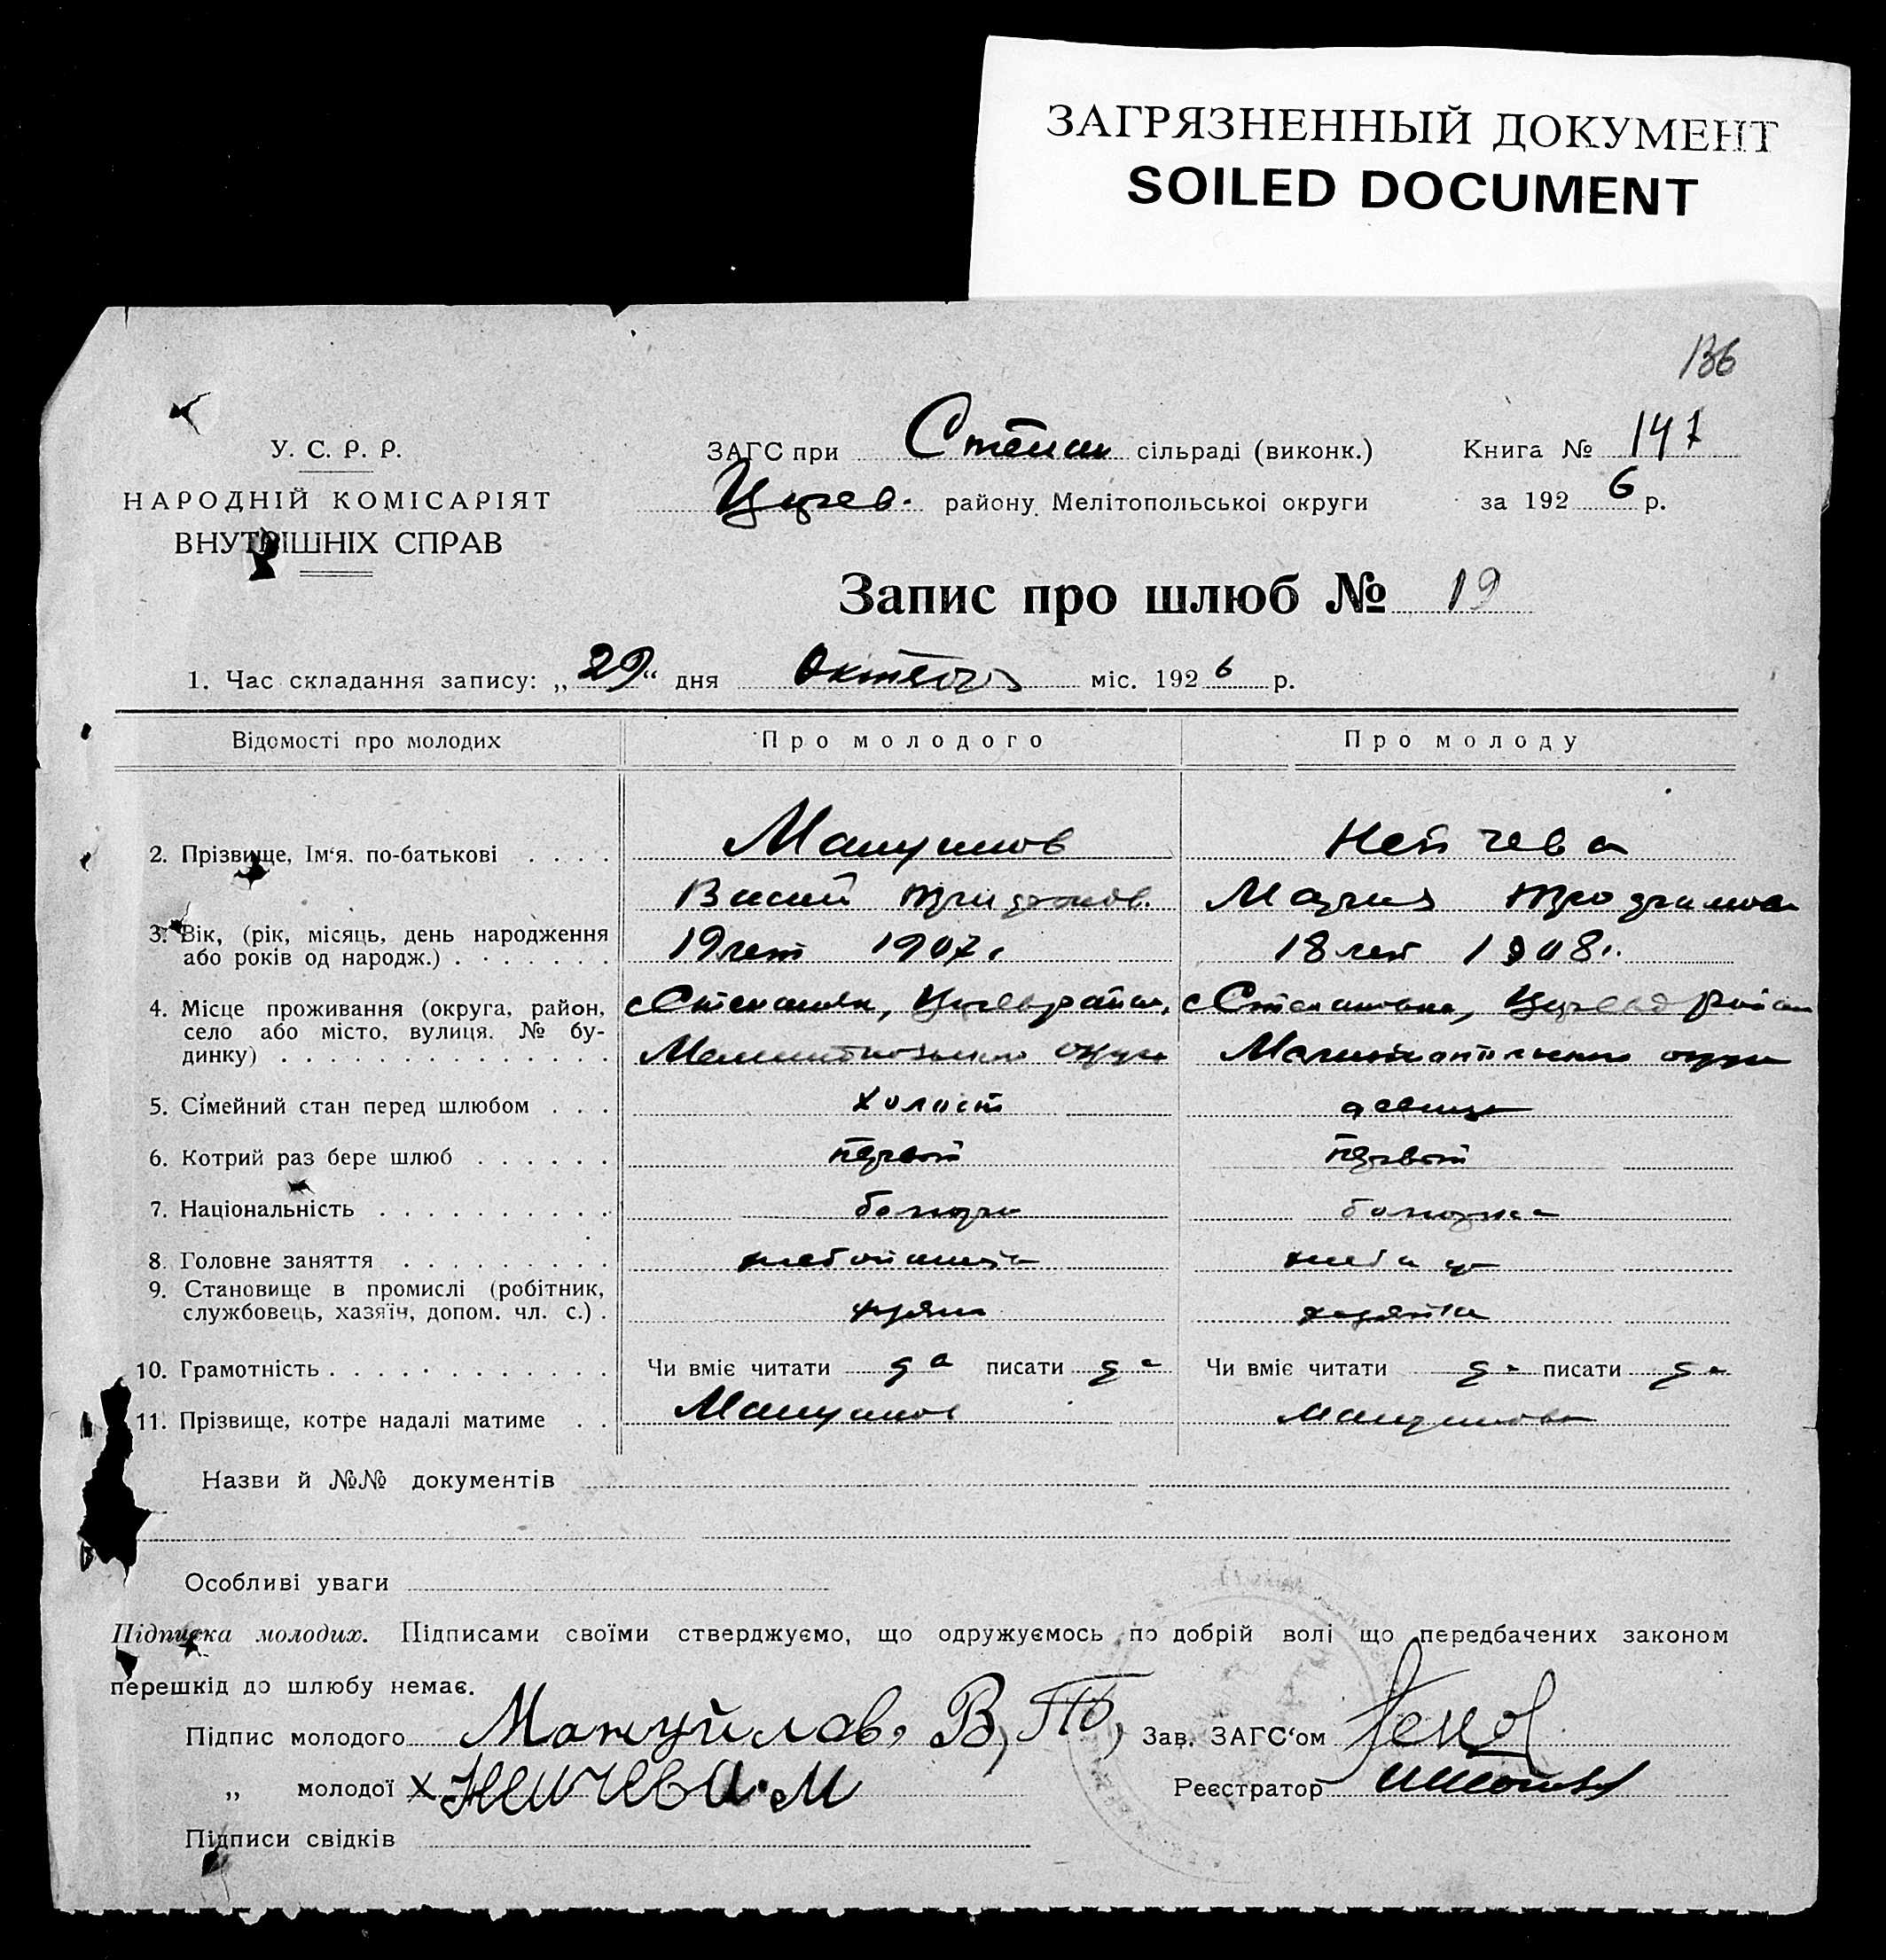 ЗАГРЯЗНЕННЫЙ ДОКУМЕНТ
SOILED DOCUMENT
136
У. С. Р. Р.
НАРОДНІЙ КОМІСАРІЯТ
ВНУТРІШНІХ СПРАВ
ЗАГС при Степан сільраді (виконк.)
Цырев. району Мелітопольської округи
Книга № 147
за 1926 р.
Запис про шлюб № 19
1. Час складання запису: „29“ дня Октября міс. 1926 р.
Відомості про молодих Про молодого Про молоду
2. Прізвище, Ім‘я, по-батькові . . . . Мануилов Нейчева
Мария
3. Вік, (рік, місяць, день народження 19 лет 1907 г. 18 лет 1908 г.
або років од народж.) . . . . . . .
4. Місце проживання (округа, район, с Степановка, с Степановка,
село або місто, вулиця. № бу-
динку) . . . . . . . . . . . . . .
5. Сімейний стан перед шлюбом . . . холост девица
6. Котрий раз бере шлюб . . . . . . первый первый
7. Національність . . . . . . . . . . болгар болгарка
8. Головне заняття . . . . . . . . .
9. Становище в промислі (робітник, хозяин хозяйка
службовець, хазяїн, допом. чл. с.) .
10. Грамотність . . . . . . . . . . . . Чи вміє читати да писати да Чи вміє читати да писати да
11. Прізвище, котре надалі матиме . . Мануилов Мануилова
Назви й №№ документів
Особливі уваги
Підписка молодих. Підписами своїми стверджуємо, що одружуємось по добрій волі що передбачених законом
перешкід до шлюбу немає.
Підпис молодого Мануйлов, В, Тр, Зав. ЗАГС‘ом
„ молодої х Нейчева. М Реєстратор
Підписи свідків